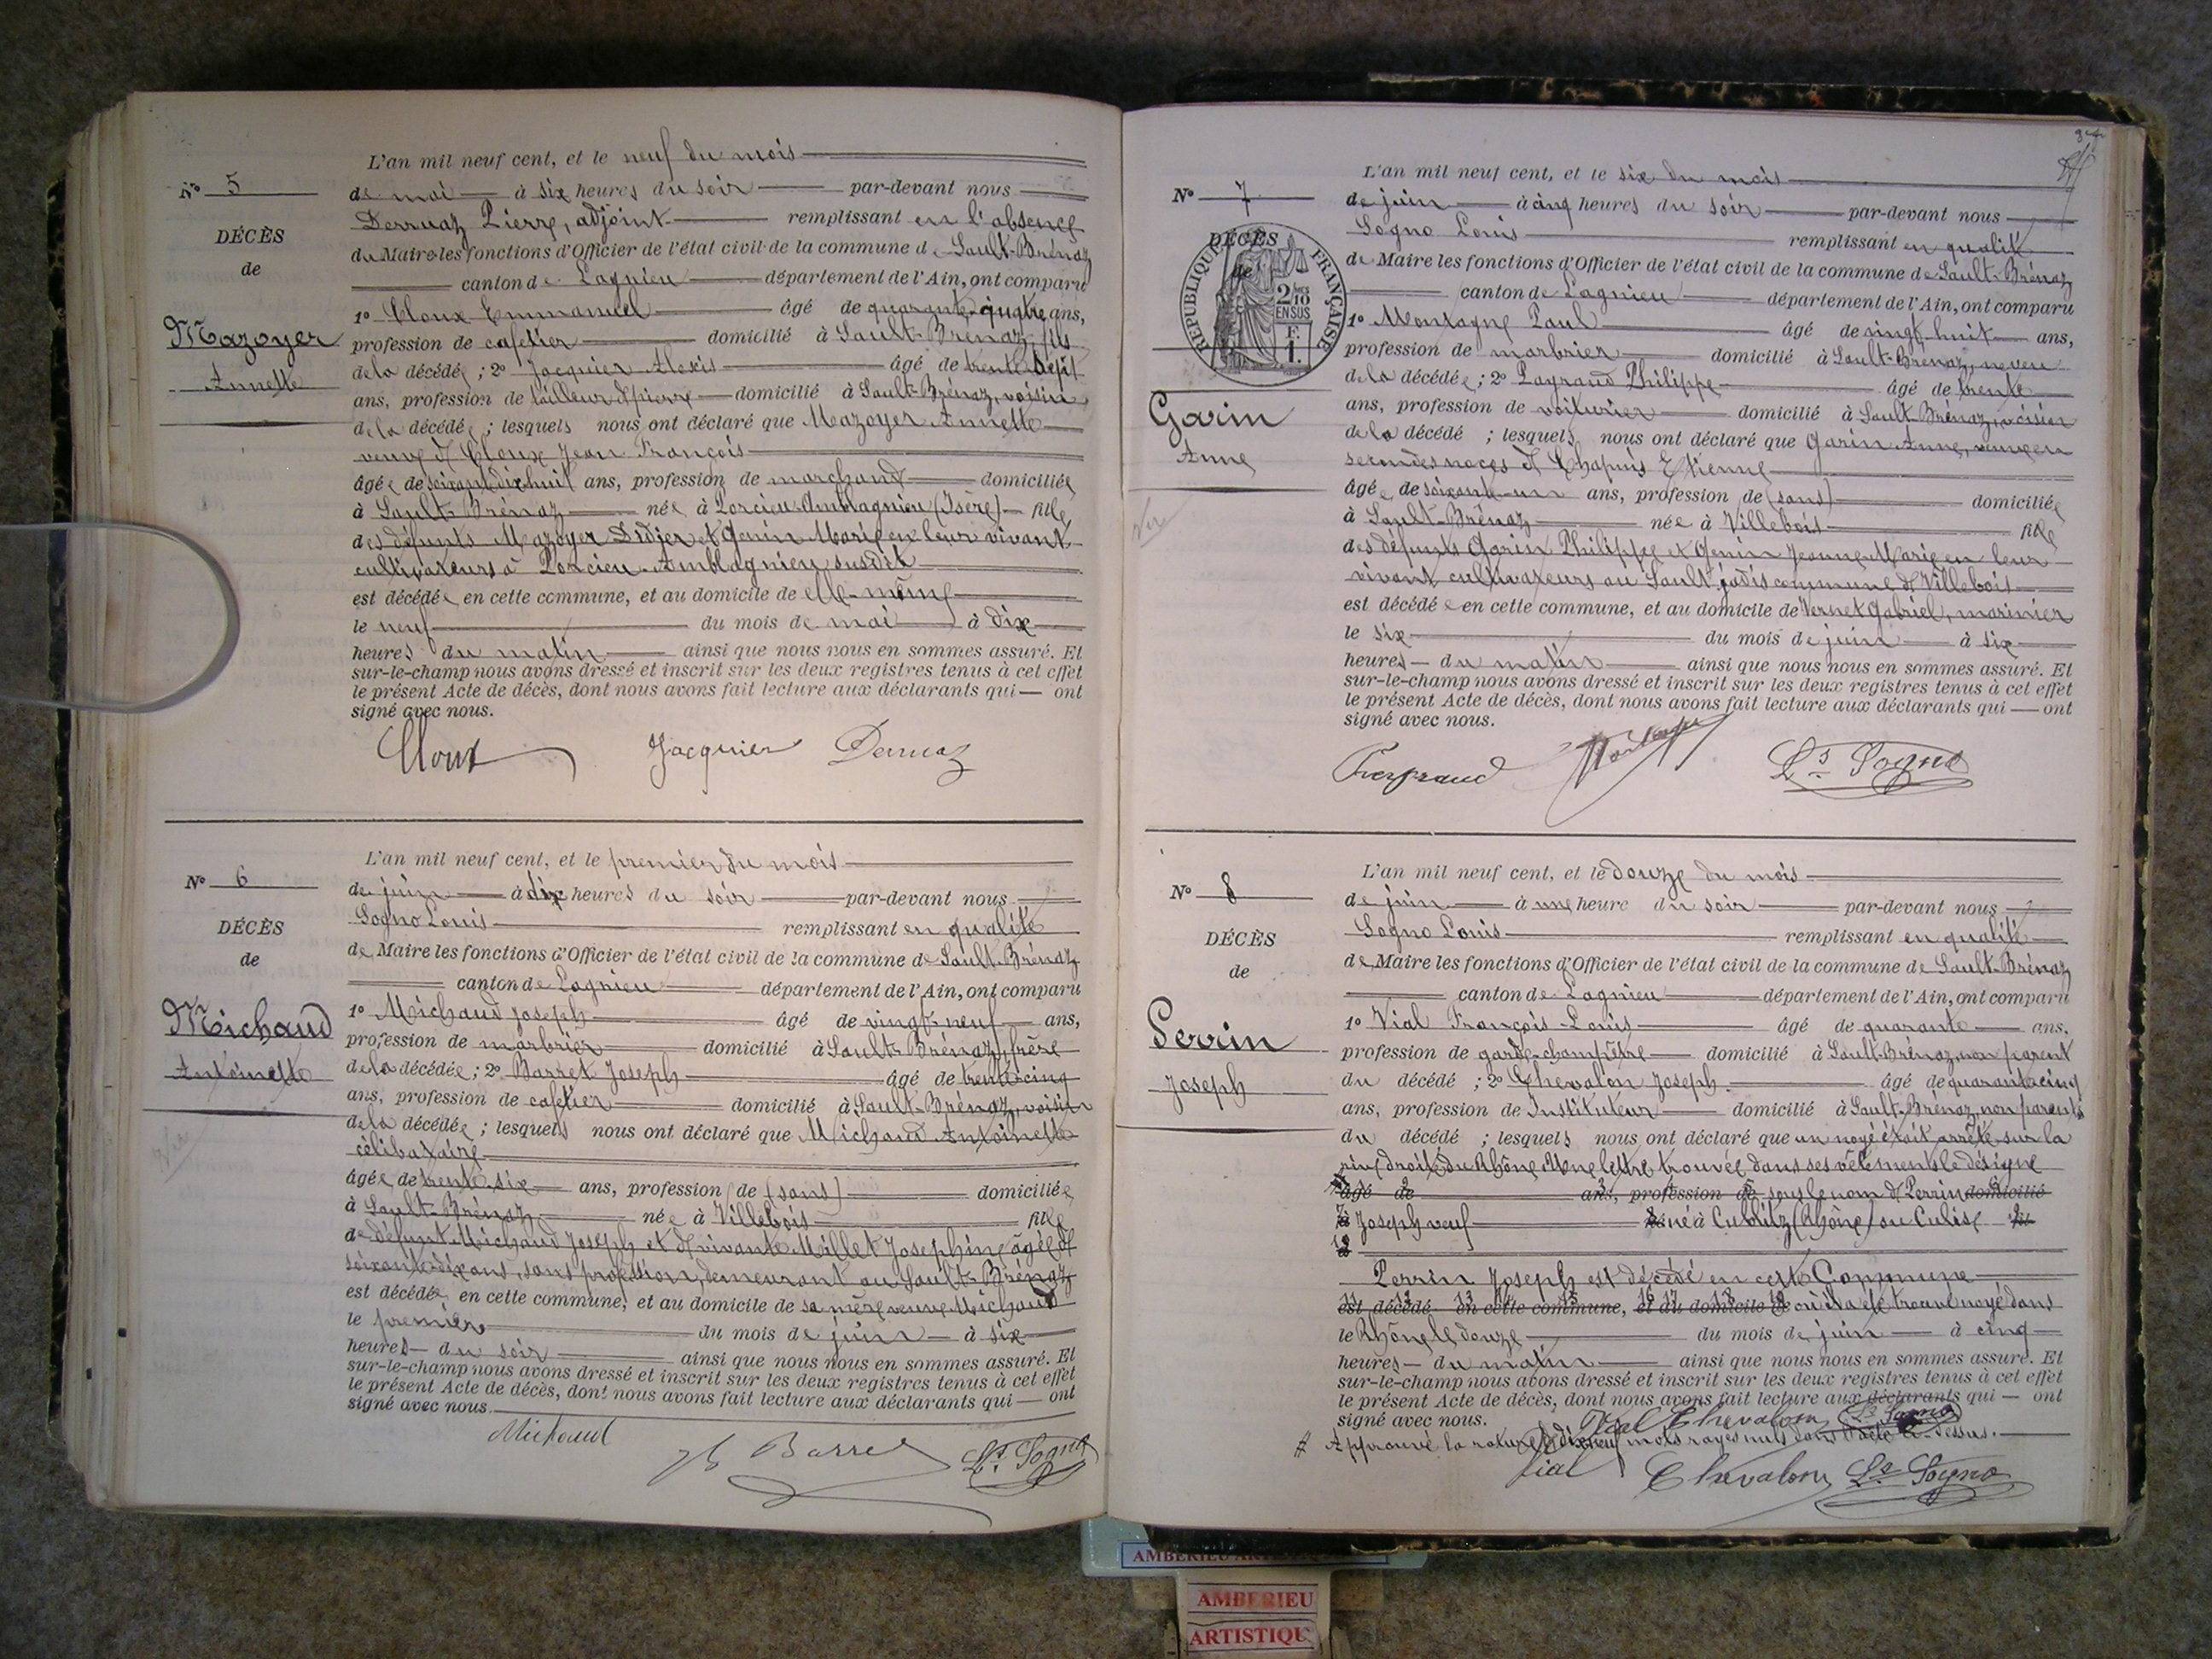 N° 5
DÉCÈS
de
Mazoyer
Annette
L'an mil neuf cent, et le neuf du mois
de mai à six heures du soir par-devant nous
Derruaz Pierre, adjoint remplissant en l'absence
du Maire les fonctions d'Officier de l'état civil de la commune de Sault-Brénaz
canton de Lagnieu département de l'Ain, ont comparu
1° Cloux Emmanuel âgé de quarante-quatre ans,
profession de cafetier domicilié à Sault-Brénaz, fils
de la décédée ; 2° Jacquier Alexis âgé de trente sept
ans, profession de tailleur de pierre domicilié à Sault-Brénaz, voisin
de la décédée ; lesquels nous ont déclaré que Mazoyer Annette
veuve de Cloux Jean François
âgée de soixante dix huit ans, profession de marchande domiciliée
à Sault-Brénaz née à Porcieu-Amblagnieu (Isère) fille
des défunts Mazoyer Didier et Genin Marie en leur vivant
cultivateurs à Porcieu-Amblagnieu susdit
est décédée en cette commune, et au domicile de elle-même
le neuf du mois de mai à dix
heures du matin ainsi que nous nous en sommes assuré. Et
sur-le-champ nous avons dressé et inscrit sur les deux registres tenus à cet effet
le présent Acte de décès, dont nous avons fait lecture aux déclarants qui — ont
signé avec nous.
Cloux Jacquier Derruaz
N° 6
DÉCÈS
de
Michaud
Antoinette
L'an mil neuf cent, et le premier du mois
de juin à dix heures du soir par-devant nous
Sogno Louis remplissant en qualité
de Maire les fonctions d'Officier de l'état civil de la commune de Sault-Brénaz
canton de Lagnieu département de l'Ain, ont comparu
1° Michaud Joseph âgé de vingt-neuf ans,
profession de marbrier domicilié à Sault-Brénaz, frère
de la décédée ; 2° Barret Joseph âgé de trente cinq
ans, profession de cafetier domicilié à Sault-Brénaz, voisin
de la décédée ; lesquels nous ont déclaré que Michaud Antoinette
célibataire
âgée de trente-six ans, profession de (sans) domiciliée
à Sault-Brénaz née à Villebois fille
de défunt Michaud Joseph et de vivante Millet Joséphine âgée de
soixante-dix ans, sans profession, demeurant au Sault-Brénaz
est décédée en cette commune, et au domicile de sa mère veuve Michaud
le premier du mois de juin à six
heures — du soir ainsi que nous nous en sommes assuré. Et
sur-le-champ nous avons dressé et inscrit sur les deux registres tenus à cet effet
le présent Acte de décès, dont nous avons fait lecture aux déclarants qui — ont
signé avec nous.
Michaud
Barret Ls Sogno
N° 7
DÉCÈS
de
RÉPUBLIQUE FRANÇAISE
2/10
EN SUS
F.
1.
Garin
Anne
L'an mil neuf cent, et le six du mois
de juin à cinq heures du soir par-devant nous
Sogno Louis remplissant en qualité
de Maire les fonctions d'Officier de l'état civil de la commune de Sault-Brénaz
canton de Lagnieu département de l'Ain, ont comparu
1° Montagne Paul âgé de vingt-huit ans,
profession de marbrier domicilié à Sault-Brénaz, neveu
de la décédée ; 2° Payraud Philippe âgé de trente
ans, profession de voiturier domicilié à Sault-Brénaz, voisin
de la décédé ; lesquels nous ont déclaré que Garin Anne, veuve en
secondes noces de Chapuis Etienne
âgée de soixante-un ans, profession de (sans) domiciliée
à Sault-Brénaz née à Villebois fille
des défunts Garin Philippe et Genin Jeanne Marie en leur
vivant cultivateurs au Sault jadis commune de Villebois
est décédée en cette commune, et au domicile de Vernet Gabriel, marinier
le six du mois de juin à six
heures — du matin ainsi que nous nous en sommes assuré. Et
sur-le-champ nous avons dressé et inscrit sur les deux registres tenus à cet effet
le présent Acte de décès, dont nous avons fait lecture aux déclarants qui — ont
signé avec nous.
Ls Sogno
N° 8
DÉCÈS
de
Perrin
Joseph
L'an mil neuf cent, et le douze du mois
de juin à une heure du soir par-devant nous
Sogno Louis remplissant en qualité
de Maire les fonctions d'Officier de l'état civil de la commune de Sault-Brénaz
canton de Lagnieu département de l'Ain, ont comparu
1° Vial François-Louis âgé de quarante ans.
profession de garde-champêtre domicilié à Sault-Brénaz, non parent
du décédé ; 2° Chevalon Joseph âgé de quarante cinq
ans, profession de Instituteur domicilié à Sault-Brénaz, non parents
du décédé ; lesquels nous ont déclaré que un noyé était arrêté sur la
rive droite du Rhône. Une lettre trouvée dans ses vêtements le désigne
âgé de ans, profession de sous le nom de Perrin domicilié
à Joseph veuf né à Cublitz (Rhône) ou Culise fil
Perrin Joseph est décédé en cette Commune
est décédé en cette commune, et au domicile de où il a été trouvé noyé dans
le Rhône le douze du mois de juin à cinq
heures — du matin ainsi que nous nous en sommes assuré. Et
sur-le-champ nous avons dressé et inscrit sur les deux registres tenus à cet effet
le présent Acte de décès, dont nous avons fait lecture aux déclarants qui — ont
signé avec nous. Vial Chevalon Ls Sogno
# Approuvé la rature de dix neuf mots rayés nuls dans l'acte ci-dessus.
Vial Chevalon Ls Sogno
AMBERIEU
AMBERIEU
ARTISTIQU